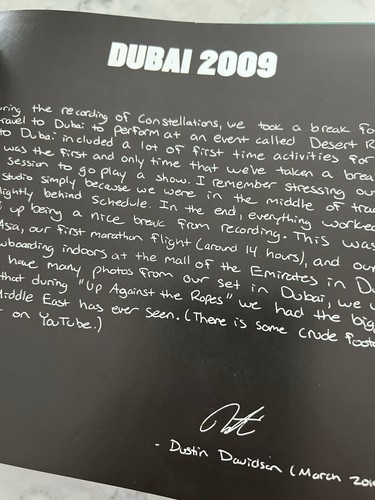 DUBAI 2009
uring the recording of Constellations, we took a break fo
ravel to Dubai to perform at an event called Desert R
to Dubai included a lot of first time activities for
was the first and only time that we've taken a brea
session to go play a show. I remember stressing ou
studio simply because we were in the middle of trac
lightly behind schedule. In the end, everything worked
up being a nice break from recording. This was
Asia, our first marathon flight (around 14 hours), and our
wboarding indoors at the mall of the Emirates in Du
have many photos from our set in Dubai, we
that during "Up Against the Ropes" we had the big
Middle East has ever seen. (There is some crude foota
on YouTube.)
- Dustin Davidson (March 201